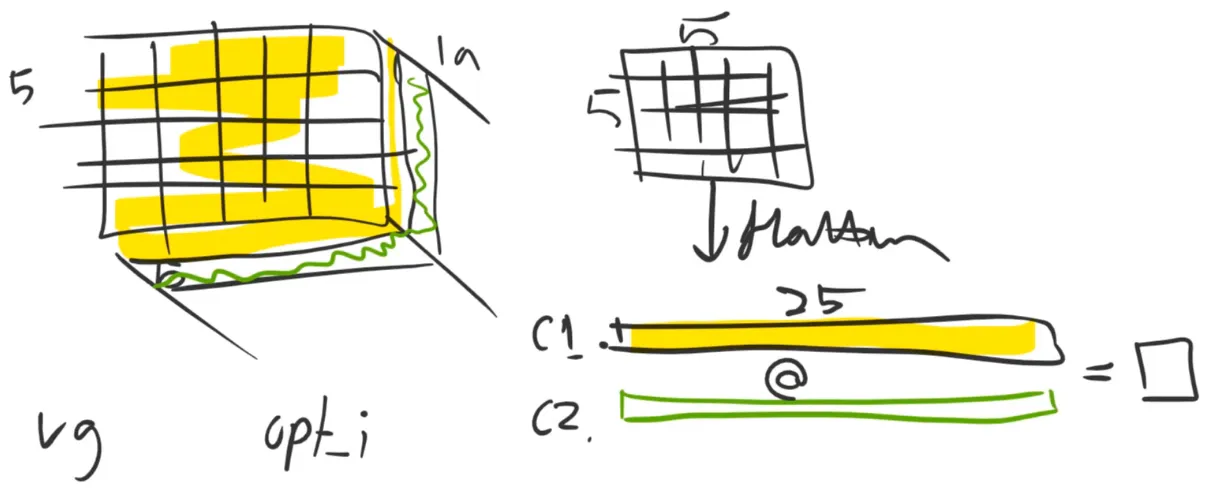 5
5
5
flatten
25
C1.
@
=
C2.
vg opt_i